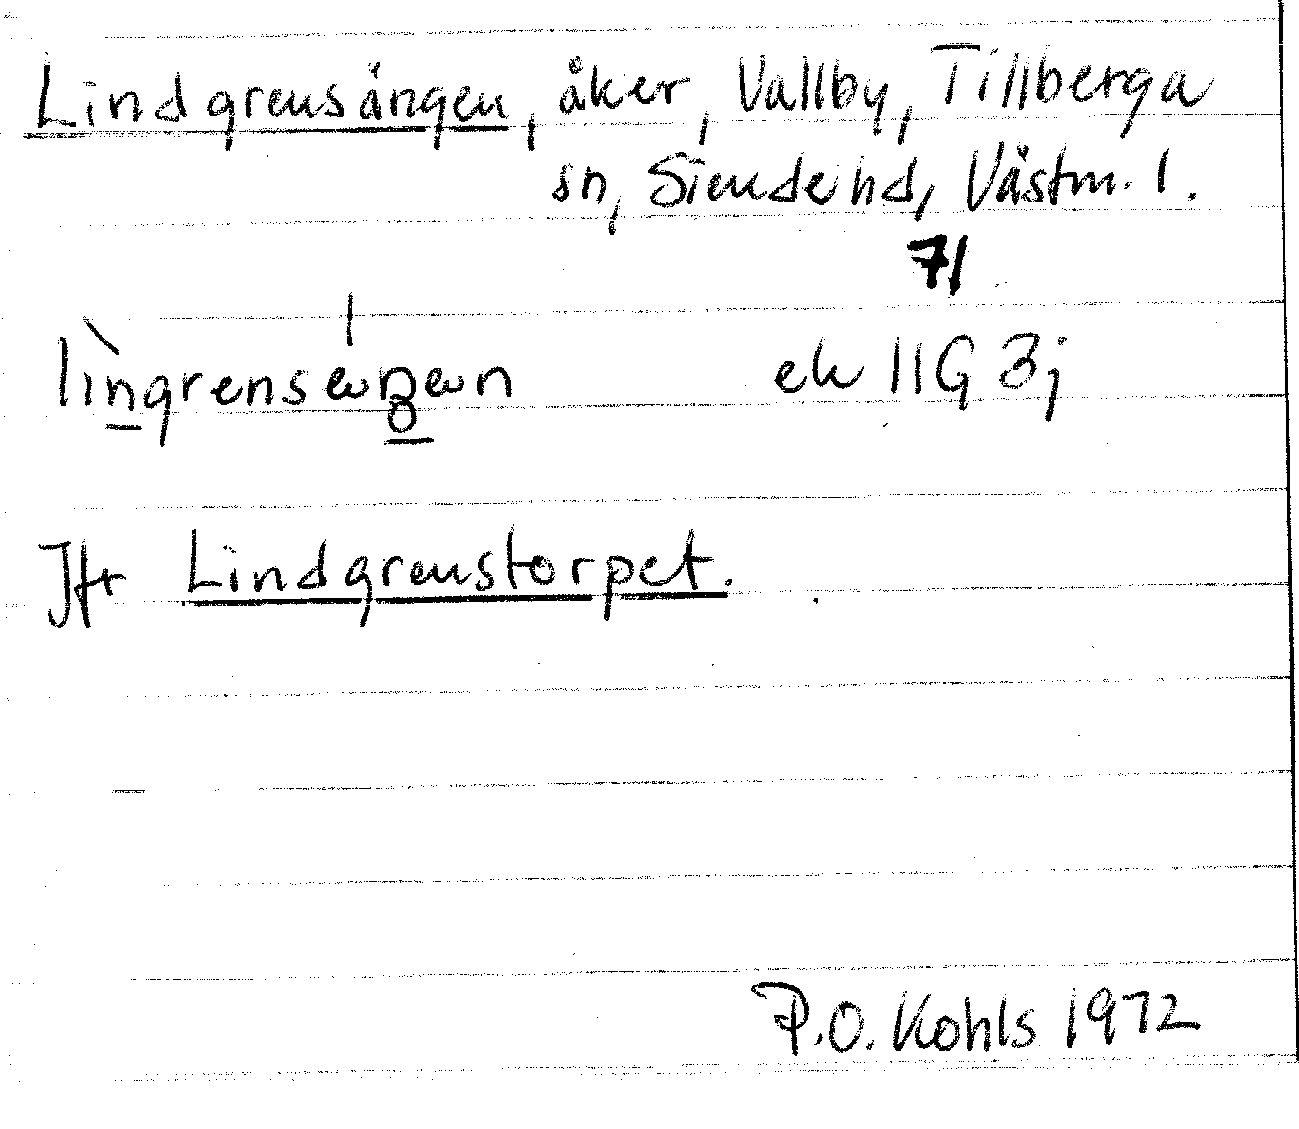 Lindgrensängen, åker, Vallby, Tillberga
sn, Siende hd, Västm. l.
71
ek 11G 3j
Jfr Lindgrenstorpet.
P.O. Kohls 1972